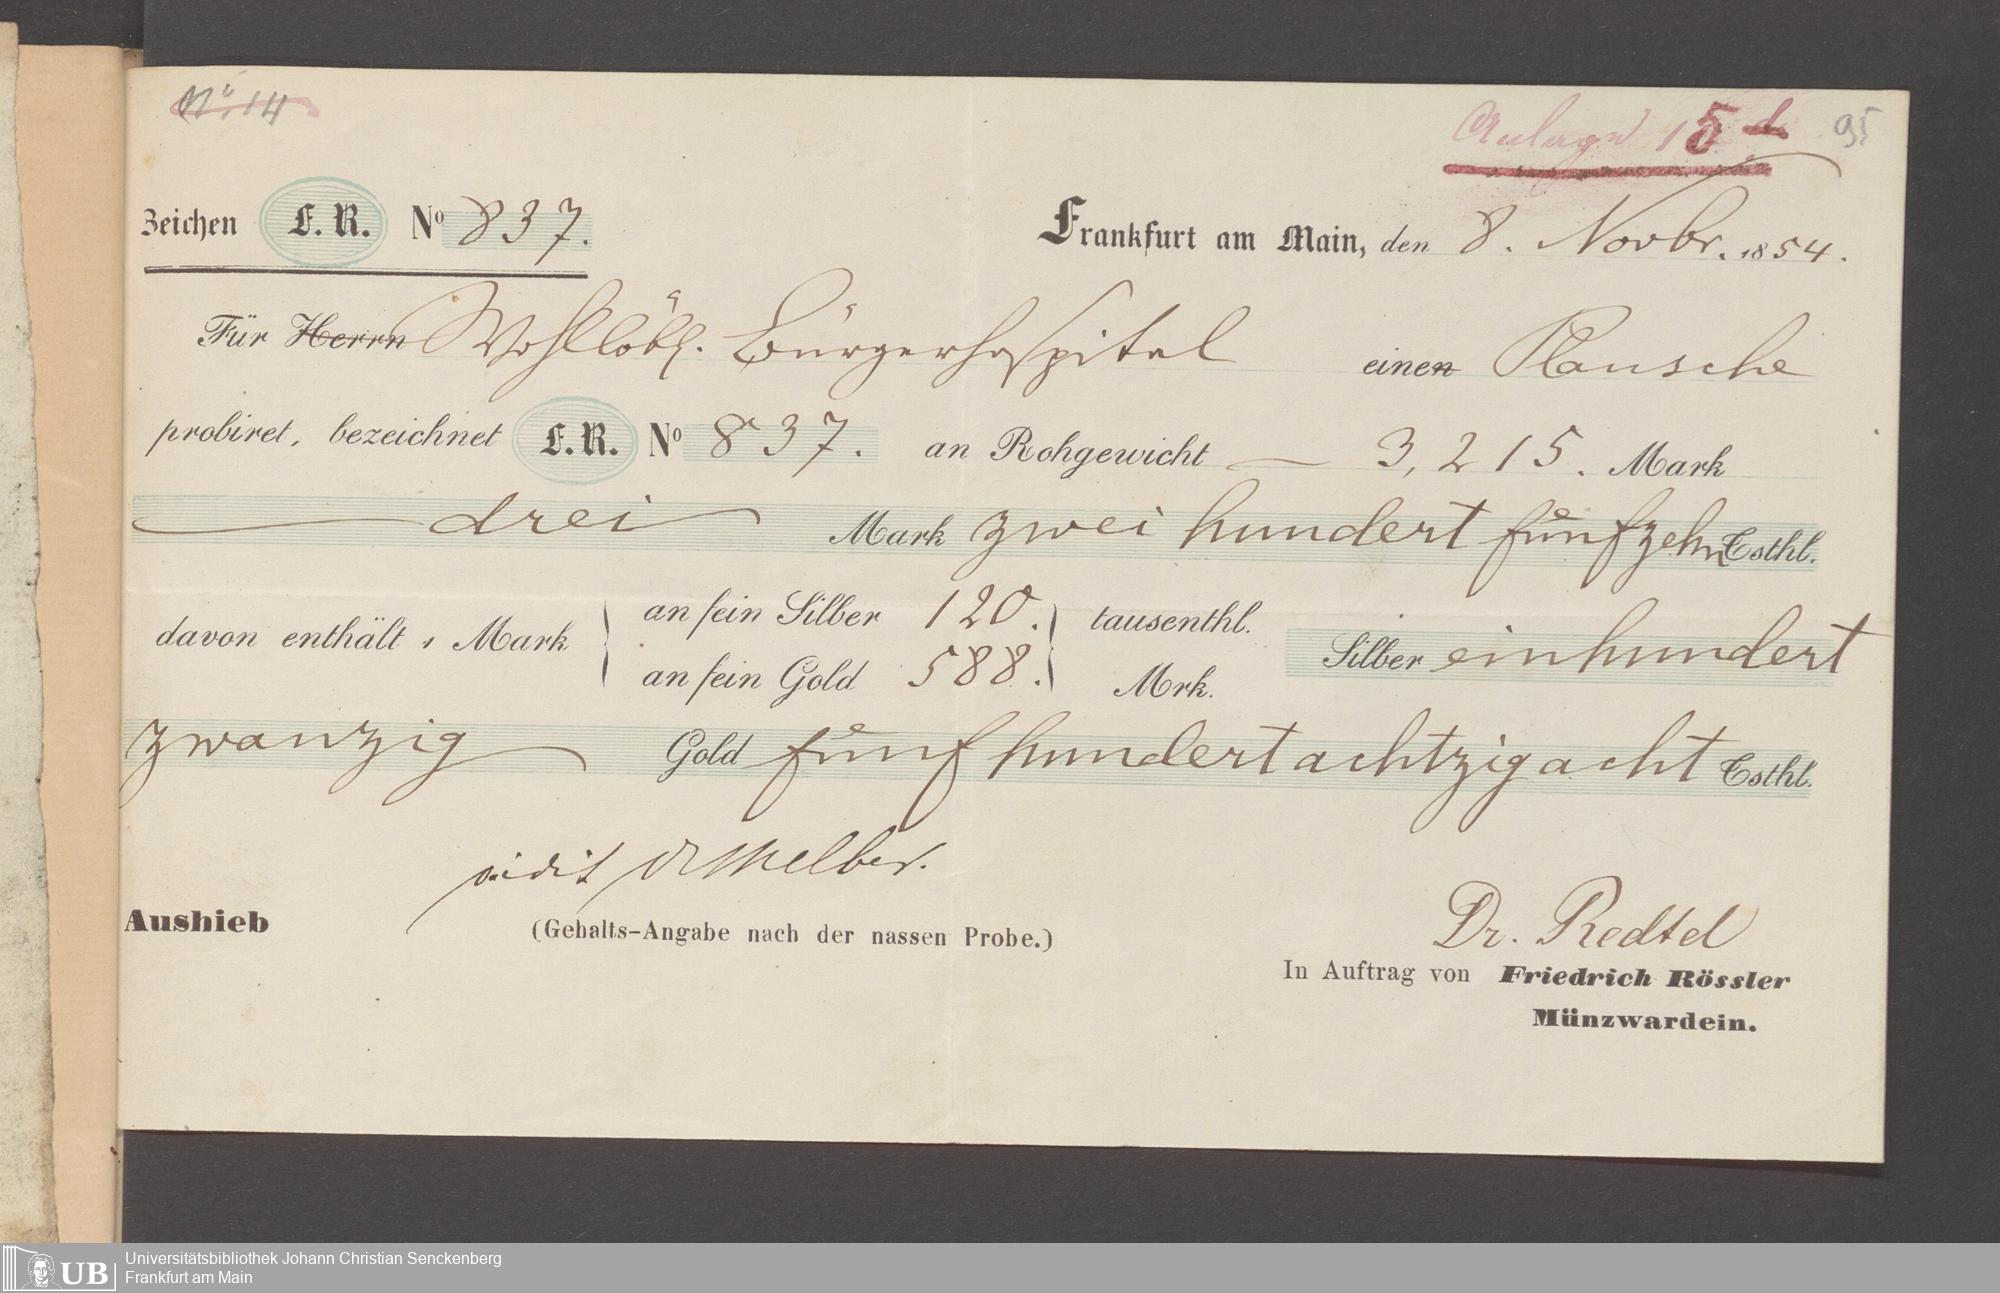 No. 14
Anlage 15 d
95
Zeichen F. R. No 837.
Frankfurt am Main, den 8. Novbr. 1854.
Für Herrn Wohllöbl. Bürgerhospital einen Plansche
probiret, bezeichnet F. R. No 837. an Rohgewicht — 3,215. Mark
drei Mark zwei hundert fünfzehn Tsthl.
davon enthält 1 Mark { an fein Silber 120. } tausenthl. Silber einhundert
an fein Gold 588. Mrk.
zwanzig Gold fünfhundertachtzigacht Tsthl.
vidit Dr Melber.
Aushieb (Gehalts-Angabe nach der nassen Probe.)
Dr. Redtel
In Auftrag von Friedrich Rössler
Münzwardein.
UB Universitätsbibliothek Johann Christian Senckenberg
Frankfurt am Main